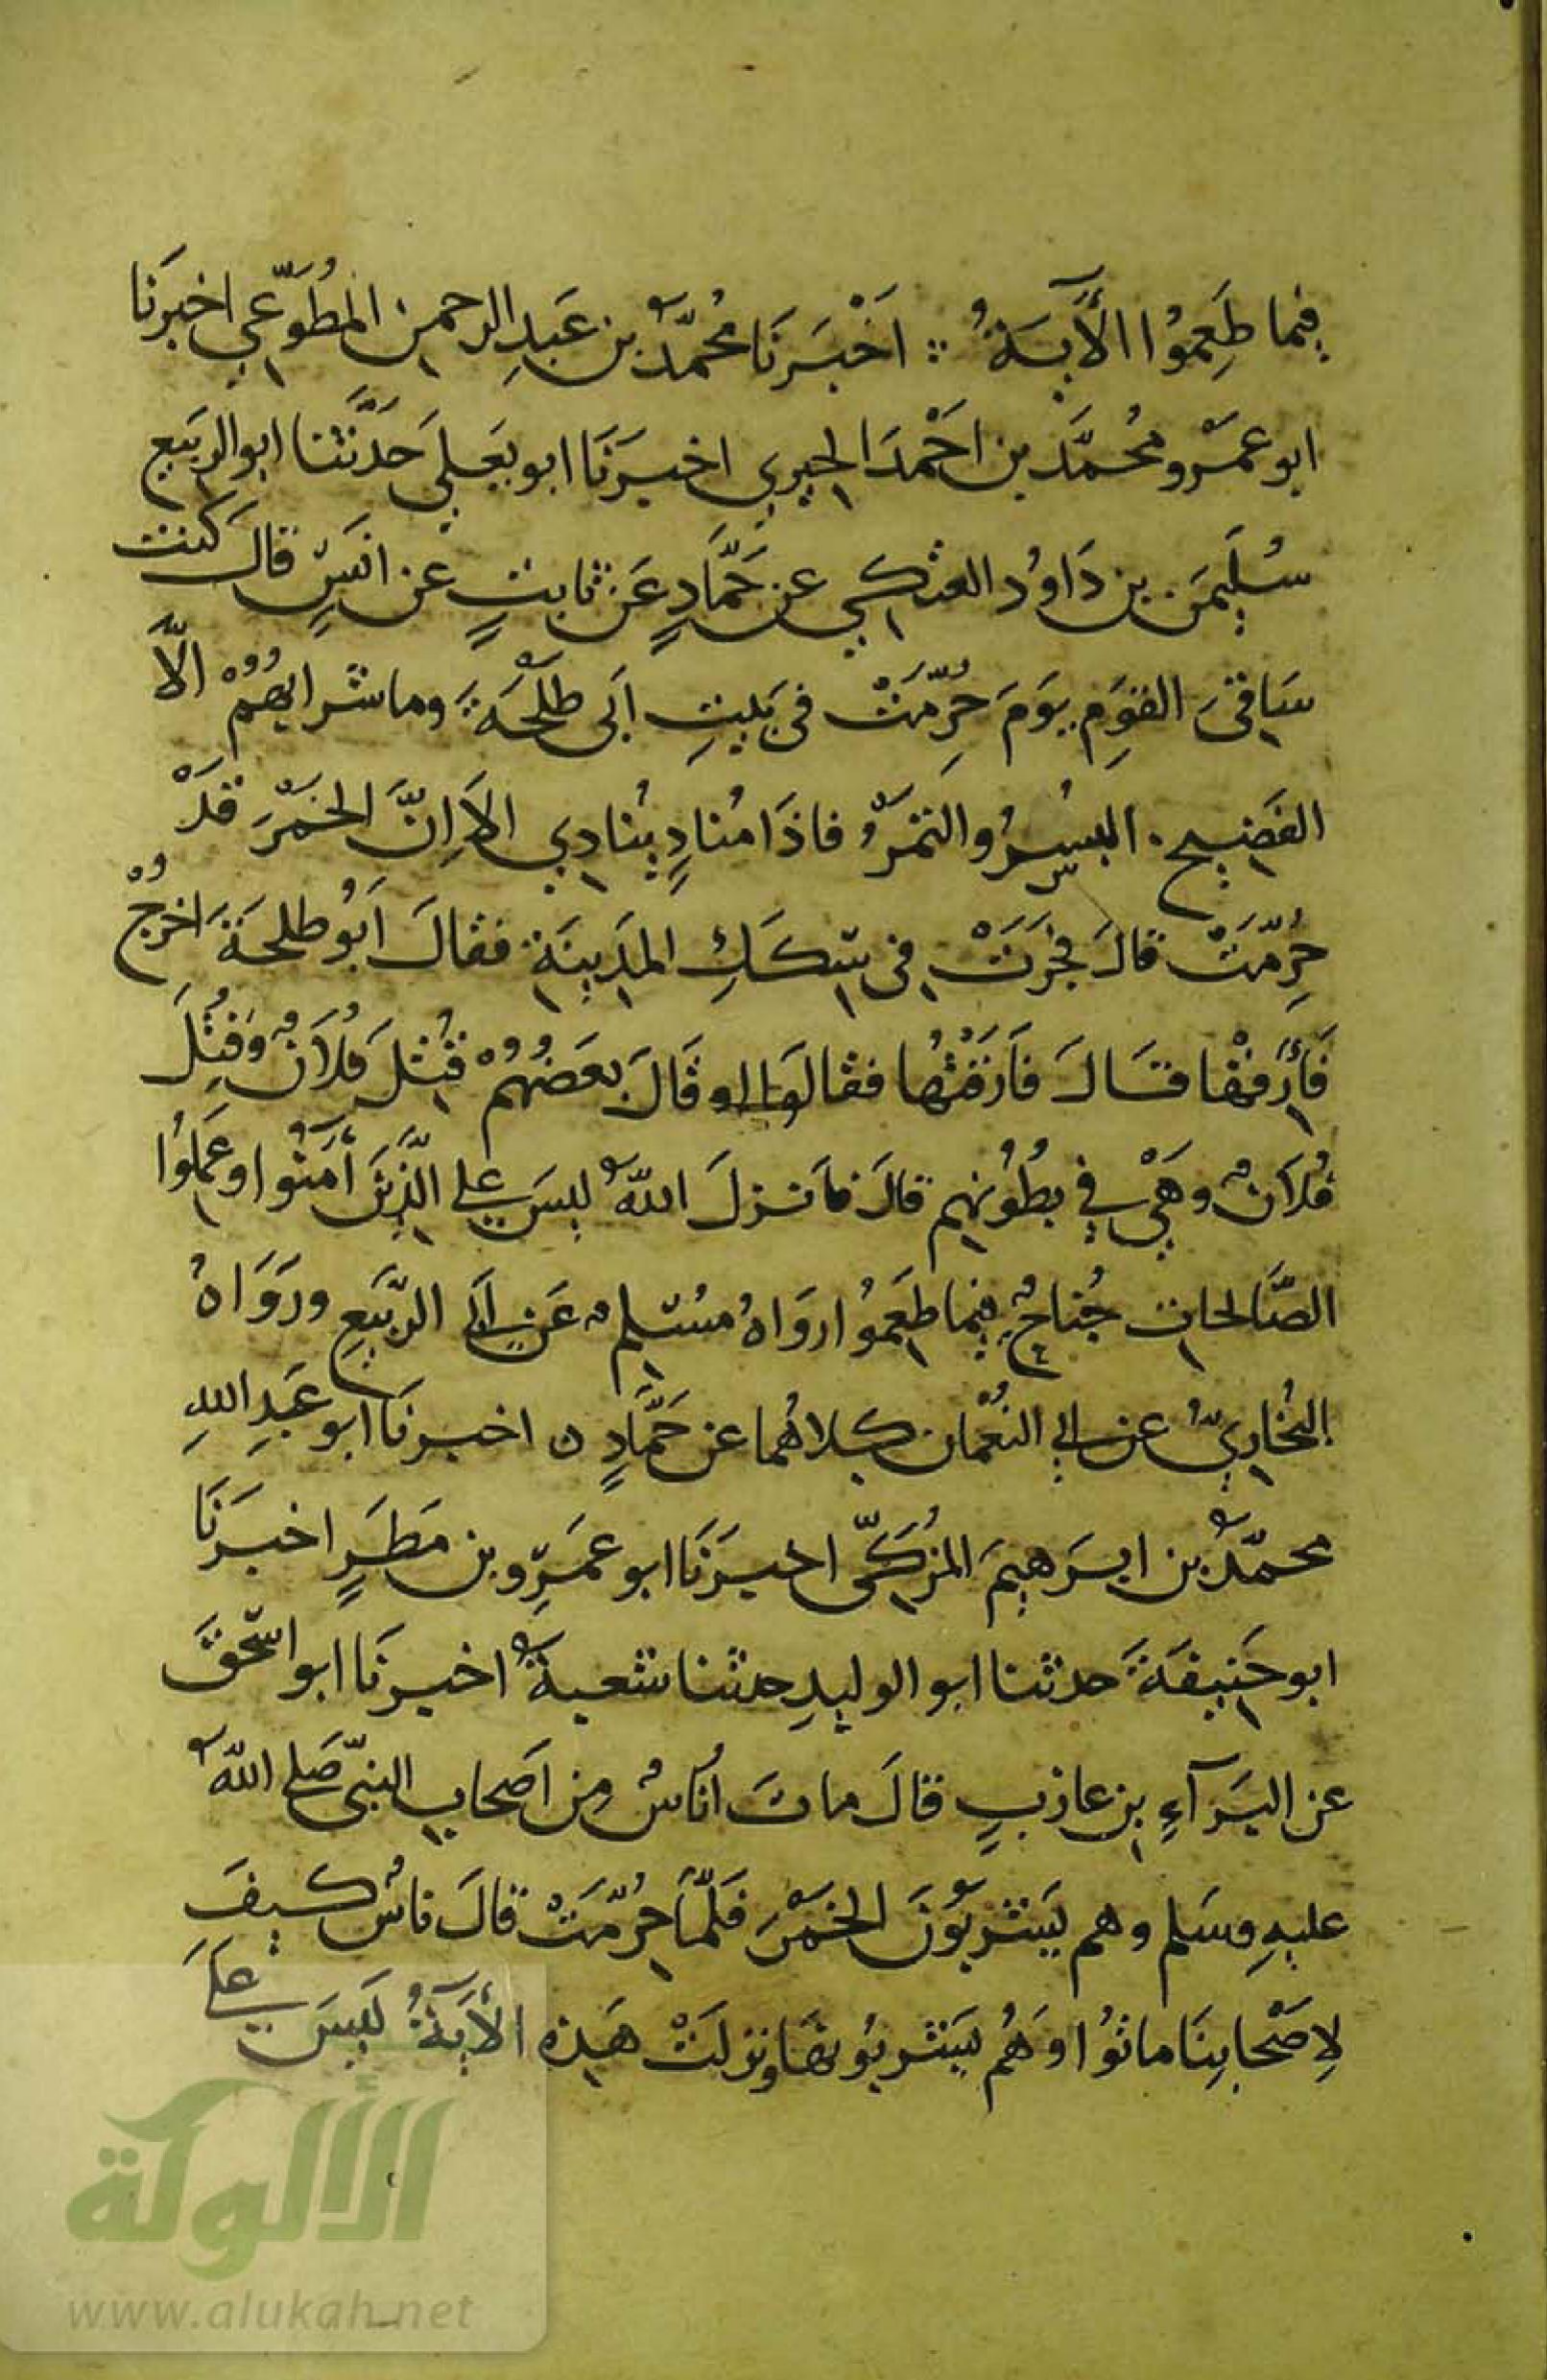 فيما طَعِمُوا الْآيَةُ ∴ اَخْبَرَنَا مُحَمَّدُ بن عَبدِ الرحمن المُطَّوِّعي اخبرَنَا
ابو عمْرو محُمَّد بن احْمَدَ الحِيري اخبرَنَا ابو يَعلي حَدَّثنا ابو الربَيع
سُليمَن بن دَاوُد العتكي عن حَمَّادٍ عَن ثابتٍ عن انَسٍ قالَ كنت
سَاقىَ القوِم يوَمَ حُرّمَتْ فى بَيتِ اَبى طلْحَةَ وما شرابهُمُ الاَّ
الفَضيح . البُسرُ والتَمْرُ فاذَا مُنادٍ يُنادي الاَ اِنَّ الخمْرَ قدَْ
حُرِّمَتْ قالَ فجَرَتْ فى سِكَكِ المدَينَة فقالَ اَبُو طلحَةَ اخرُجْ
فَأَرِقْهَا قَالَ فَأَرَقْتُهَا فقالوَا او قَالَ بعَضُهُمْ قُتِلَ فُلاَنٌ وَقُتِلَ
فُلاَنٌ وهَىْ في بطُوُنهِم قالَ فاَنزلَ اللّهُ ليسَ علي الَّذِينَ اٰمَنُوا وعَمِلُوا
الصَّالحات جُناحٌ فيما طَعِمُوُا روَاهُ مسُلمٌ عَن اَبى الرَّبَيعِ وروَاهُ
البُخَاريُّ عن ابي النُعْمان كلاهُما عن حَمَّادٍ ن اخبرنَا ابو عَبدِ اللهِ
محمّدُ بن ابرَهيمَ المُزكّى اخبرَنَا ابو عمَرِو بن مَطَرٍ اخبرَنَا
ابو خَليفَةَ حدثنا ابو الوليدِ حدثنا شعبةُ اخبرنَا ابو اسحقَ
عن البرَآءِ بن عازبٍ قالَ ماتَ اُناسٌ مِن اَصحابِ النبىّ صَلي اللّهُ
عليهِ وسَلم وهم يَشربُوَنَ الخمَرَ فَلمّاَ حُرّمَتْ قالَ ناسٌ كيفَ
لِاَصْحابنَا ماتُوُا وَهُم يَشربُونهَا ونزلَتْ هَذِه الْأٰيَةُ لَيسَ عَلَي
الألوكة
www.alukah.net